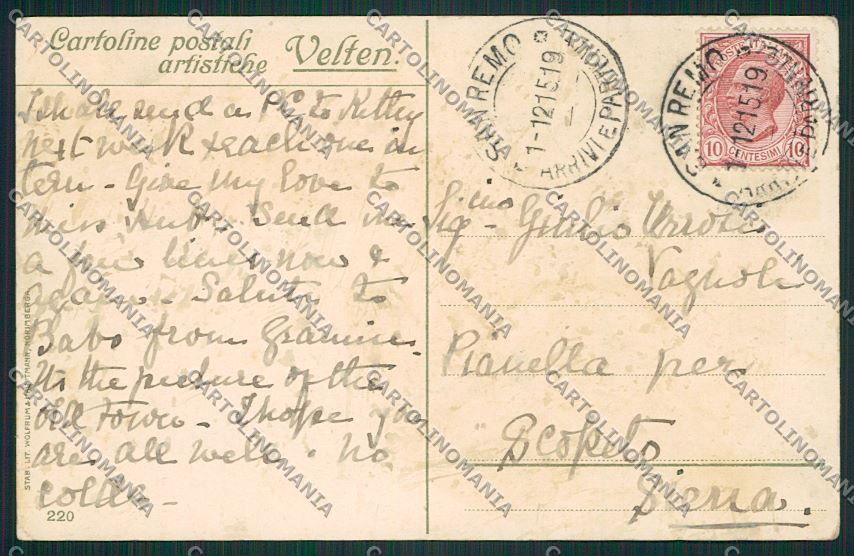 Cartoline postali
artistiche Velten.
I shall send a PC to Kitty
next week & each one in
turn - Give my love to
Miss Send me
a line now &
again - Salute to
Babs from Grannie.
Its the picture of the
old town - I hope you
are all well - no
colds -
220
STAB. LIT. WOLFRUM & HAUPTMANN, NORIMBERGA
SAN REMO
1-12 15 19
ARRIVI E PARTENZE
SAN REMO
1-12 15 19
POSTE ITALIANE
10 CENTESIMI 10
Sig.ino Giulio
Vagnoli
Pianella per
Scopeto
Siena.
CARTOLINOMANIA